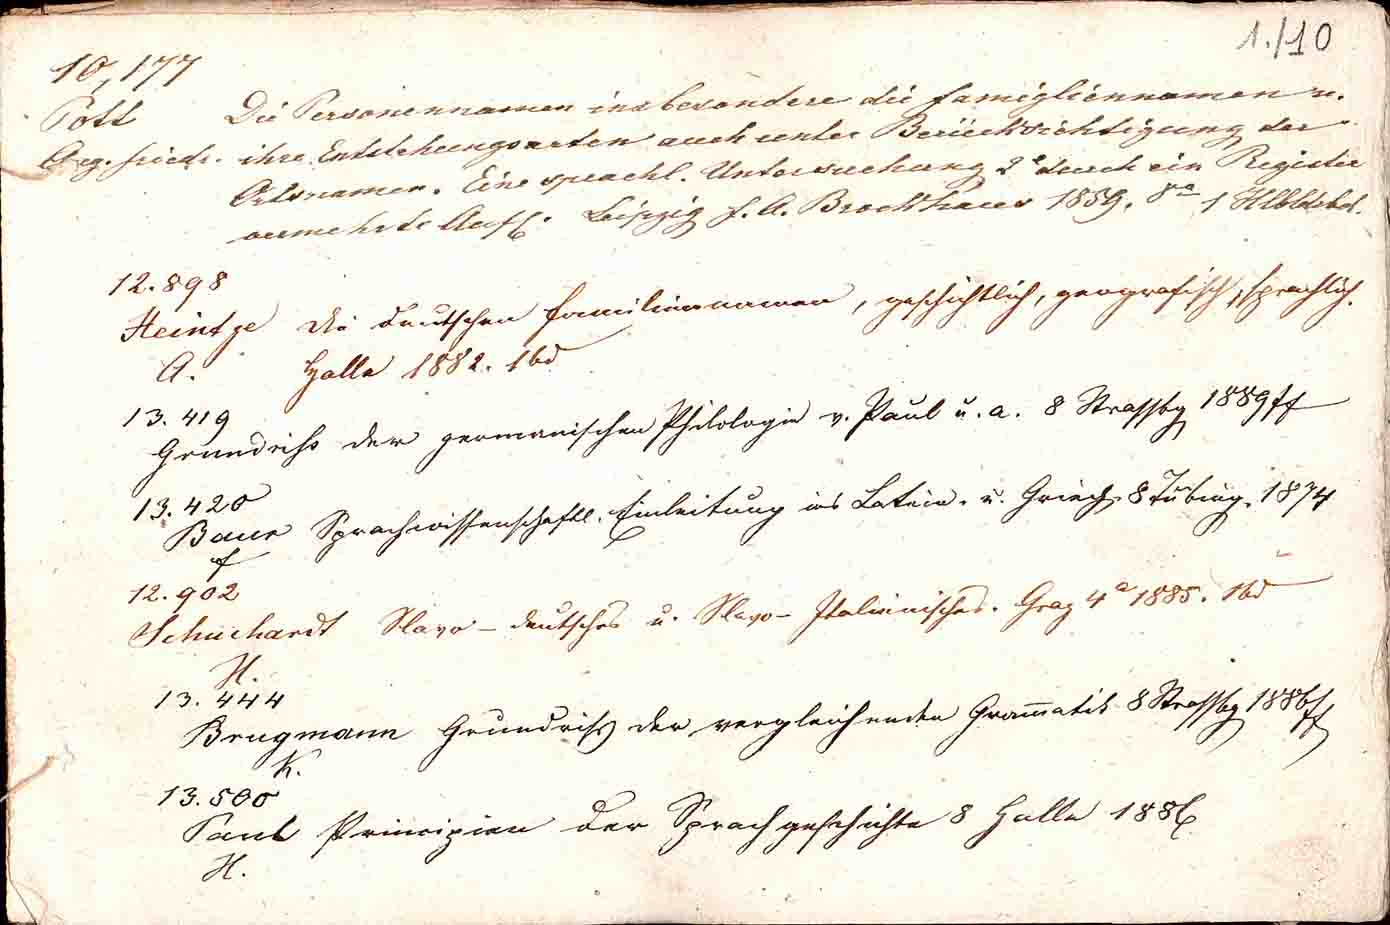 1./10
10,177
Pott Die Personennamen insbesondere die Famigliennamen u.
Aug. Friedr. ihre Entstehungsarten auch unter Berücksichtigung der
Ortsnamen. Eine sprachl. Untersuchung 2e durch ein Register
vermehrte Aufl. Leipzig F. A. Brockhaus 1859. 8vo 1 Hlbldrbd.
12.898
Heintze die deutschen Familiennamen, geschichtlich, geografisch, sprachlich.
A. Halle 1882. 1bd
13.419
Grundriss der germanischen Philologie v. Paul u. a. 8 Strassbg 1889ff
13.420
Baur Sprachwissenschaftl. Einleitung ins Latein. u. Griech. 8 Tübing. 1874
F
12.902
Schuchardt Slavo-deutsches u. Slavo-Italienisches. Graz 4o 1885. 1bd
H.
13.444
Brugmann Grundriss der vergleichenden Grammatik 8 Strassbg 1886ff
K.
13.500
Paul Principien der Sprachgeschichte 8 Halle 1886
H.